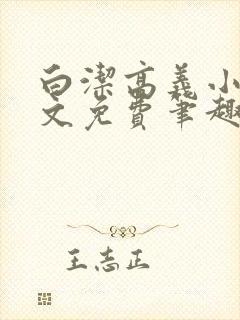 白潔高義小
文免費筆趣
王志正